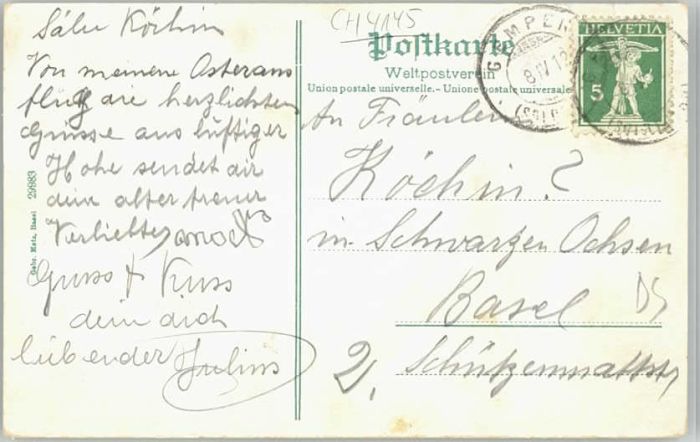 CH 4145
Sälu Köchin
Von meinem Osteraus
flug die herzlichsten
Grüsse aus luftiger
Höhe sendet dir
dein alter treuer
Verliebter
Gruss + Kuss
dein dich
liebender Julius
Gebr. Metz, Basel 29983
Postkarte
Weltpostverein
Union postale universelle. - Unione postale universale
GEMPEN
8 IV 12
(SOL
HELVETIA
5
An Fräulein
Köchin?
in Schwarzen Ochsen
Basel
Schützenmattstr